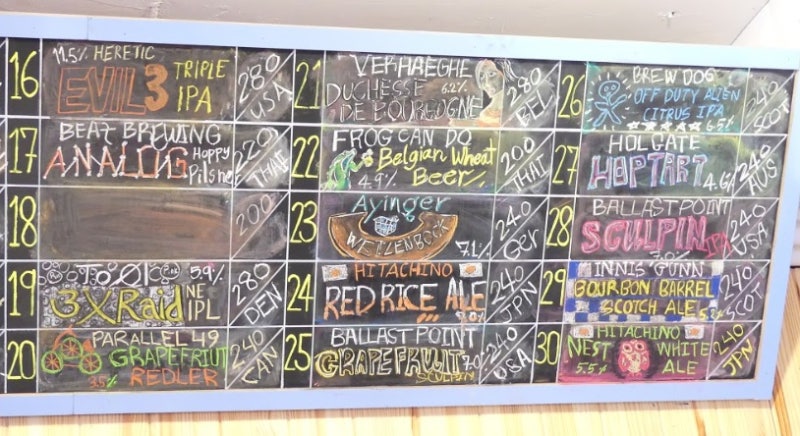 16 11.5% HERETIC
EVIL 3 TRIPLE IPA
280 USA
17 BEAT BREWING
ANALOG Hoppy Pilsner
220 THAI
18 200
19 5.9%
3X Raid NE IPL
280 DEN
20 PARALLEL 49
GRAPEFRIUT
3.5% REDLER
240 CAN
21 VERHAEGHE
DUCHESSE 6.2%
DE BOURGOGNE
280 BEL
22 FROG CAN DO
Belgian Wheat
4.9% Beer
200 THAI
23 Ayinger
WEIZENBOCK
7.1%
240 Ger
24 HITACHINO
RED RICE ALE
7.0%
240 JPN
25 BALLAST POINT
GRAPEFRUIT 7.0
SCULPIN
240 USA
26 BREW DOG
OFF DUTY ALIEN
CITRUS IPA
6.5%
240 SCOT
27 HOLGATE
HOPTART
240 AUS
28 BALLAST POINT
SCULPIN IPA
7.0%
240 USA
29 INNIS GUNN
BOURBON BARREL
SCOTCH ALE
240 SCOT
30 HITACHINO
NEST WHITE
5.5% ALE
240 JPN